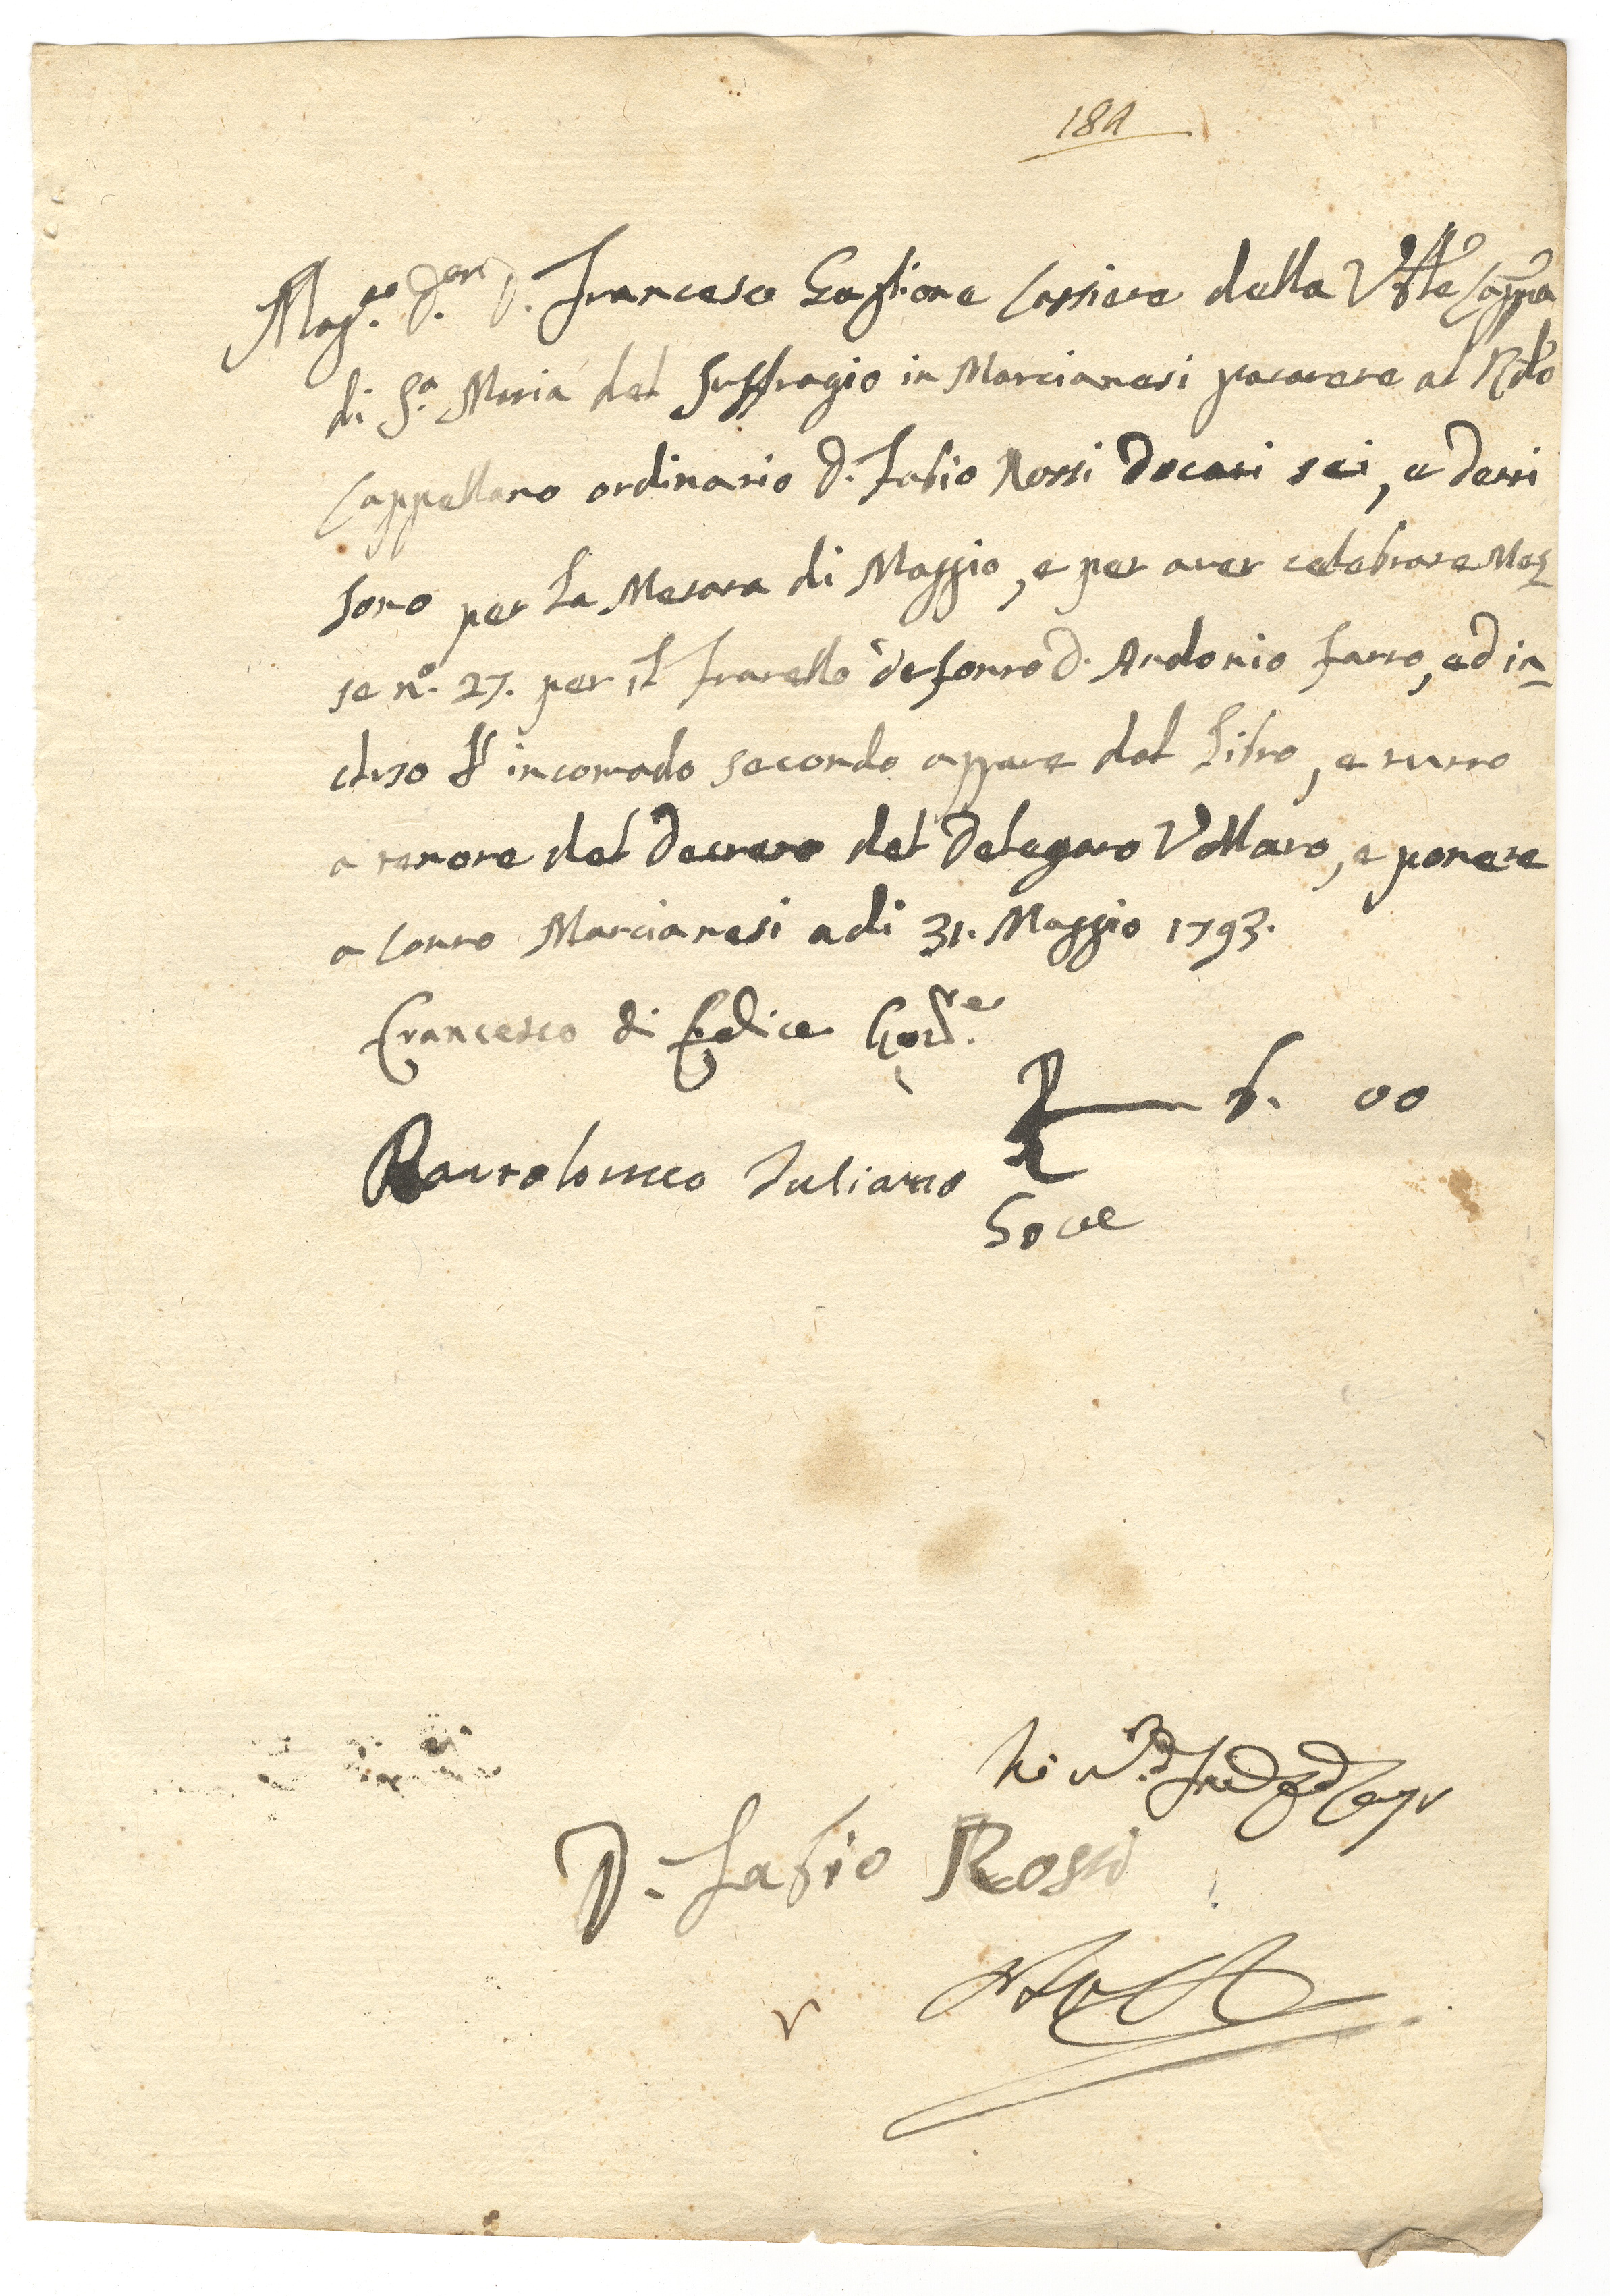 184
Mag.co Sen.r D. Francesco Gaglione Cassiere della V̅b̅le Cappa
di S.a Maria del Suffragio in Marcianesi pacarete al R̅d̅o
Cappellano ordinario D. Fabio Rossi docati sei, e detti
sono per la Mesata di Maggio, e per aver celebrate Mes=
se n.o 27. per il fratello defonto D. Andonio Farro, ed in=
cluso l'incomodo secondo appare dal libro, e tutto
a tenore del decreto del Delegato Vollaro, e ponete
a conto Marcianesi a di 31. Maggio 1793.
Francesco di Felice Gov.re
6. 00
Bartolomeo Iuliano
Gove
D. Fabio Rossi